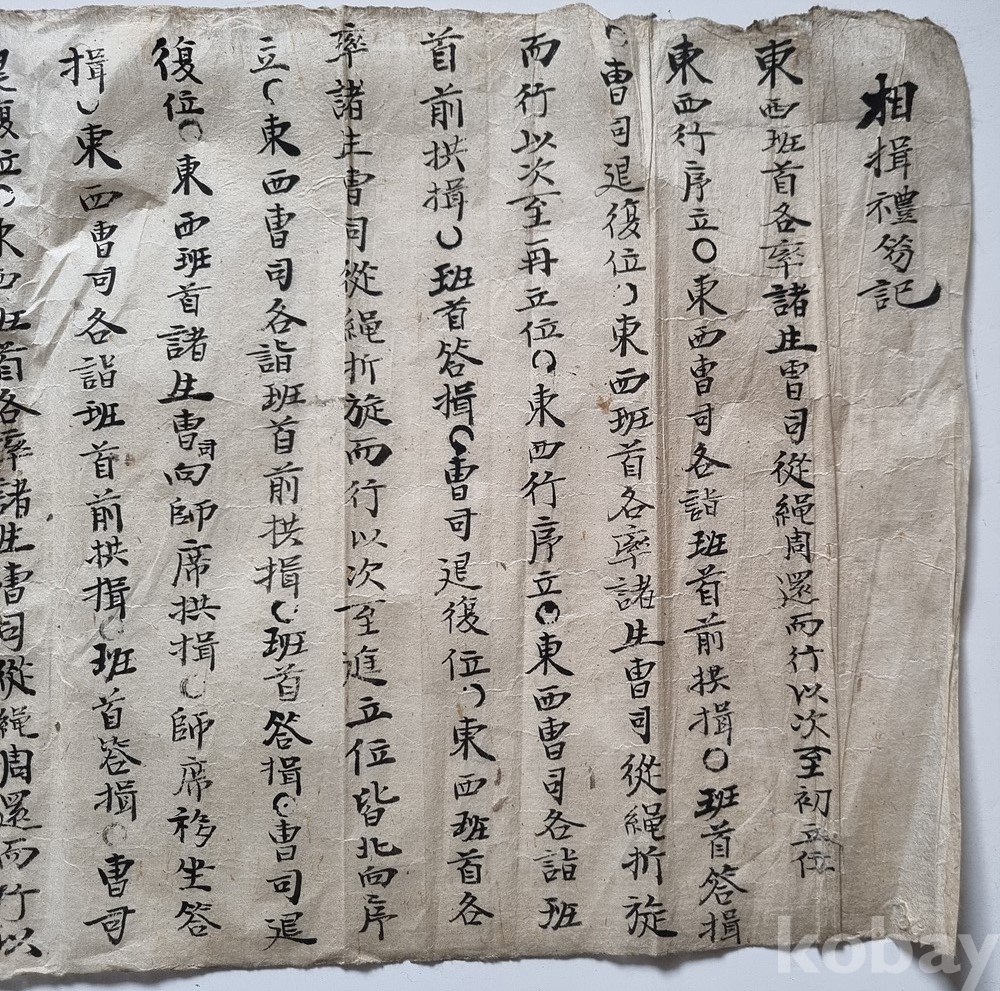 相揖禮笏記
東西班首各率諸生曹司從繩周還而行以次至初立位
東西行序立○東西曹司各詣班首前拱揖○班首答揖
○曹司退復位○東西班首各率諸生曹司從繩折旋
而行以次至再立位○東西行序立○東西曹司各詣班
首前拱揖○班首答揖○曹司退復位○東西班首各
率諸生曹司從繩折旋而行以次至進立位皆北向序
立○東西曹司各詣班首前拱揖○班首答揖○曹司退
復位○東西班首諸生曹司向師席拱揖○師席移坐答
揖○東西曹司各詣班首前拱揖○班首答揖○曹司
退復位○次東西班首各率諸生曹司從繩周還而行以
kobay